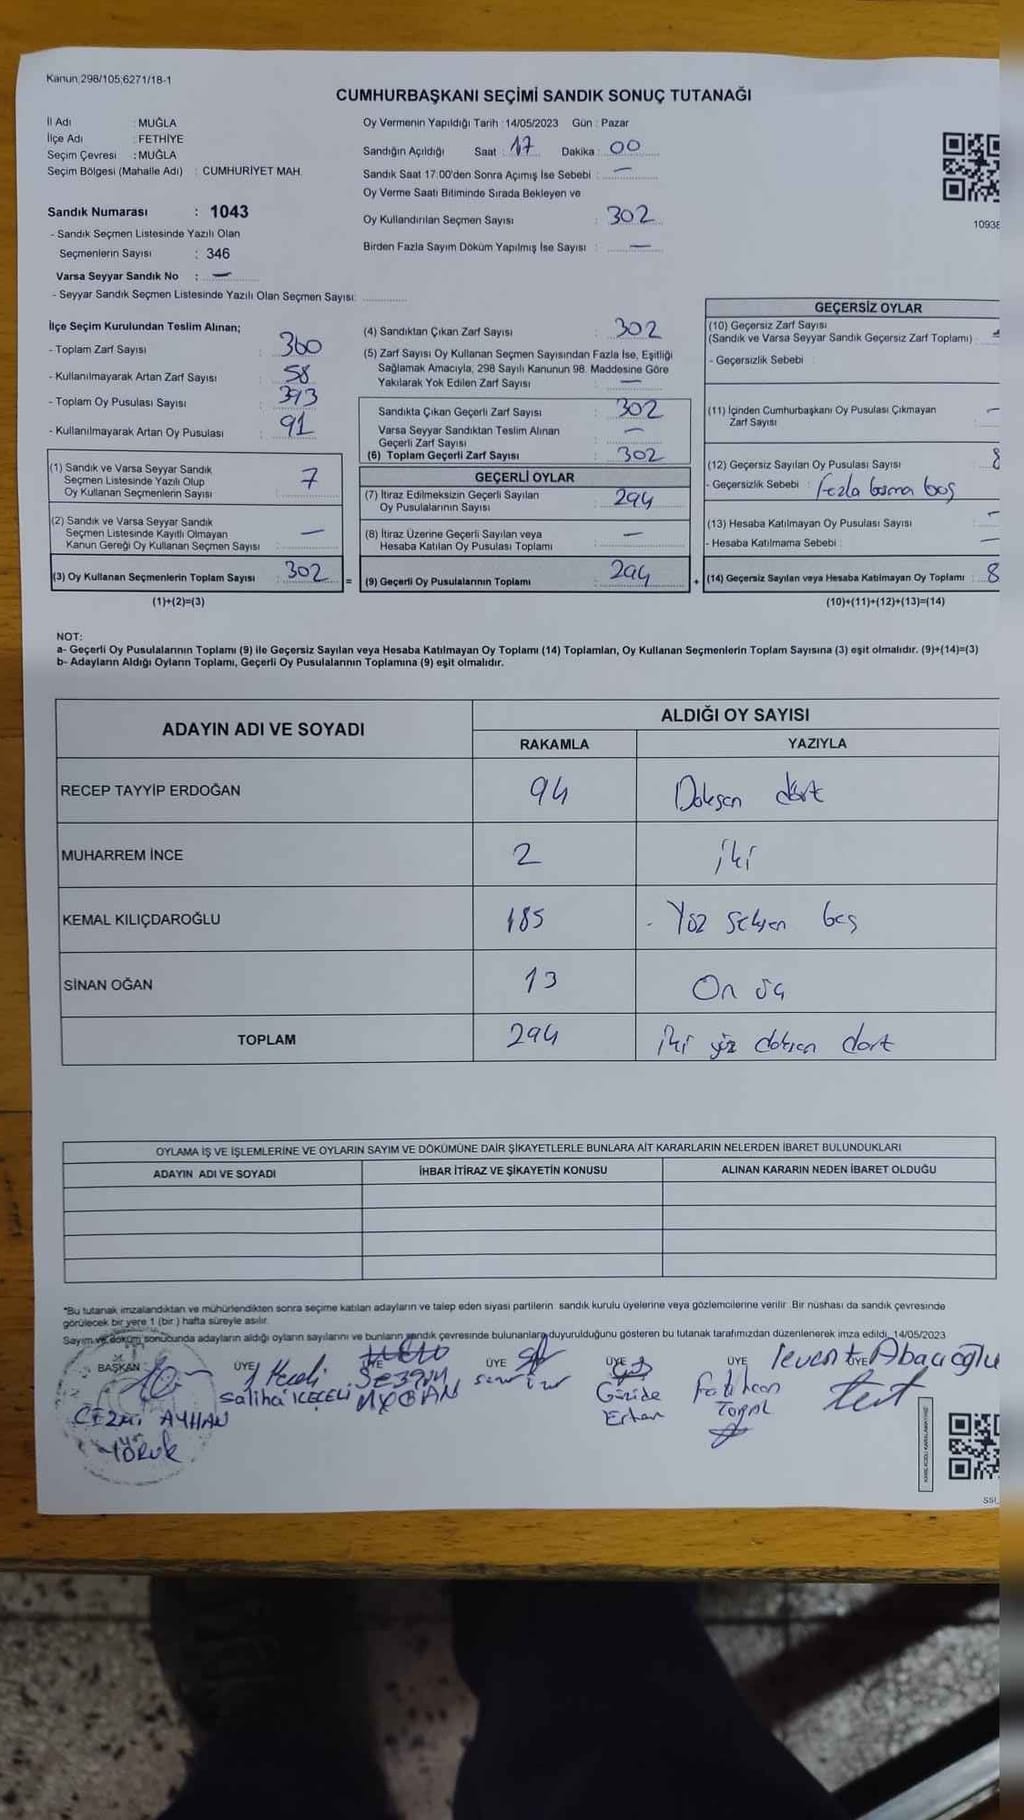 Kanun;298/105;6271/18-1
CUMHURBAŞKANI SEÇİMİ SANDIK SONUÇ TUTANAĞI
İl Adı : MUĞLA
İlçe Adı : FETHİYE
Seçim Çevresi : MUĞLA
Seçim Bölgesi (Mahalle Adı) : CUMHURİYET MAH.
Sandık Numarası : 1043
- Sandık Seçmen Listesinde Yazılı Olan
Seçmenlerin Sayısı : 346
Varsa Seyyar Sandık No : —
- Seyyar Sandık Seçmen Listesinde Yazılı Olan Seçmen Sayısı:
Oy Vermenin Yapıldığı Tarih : 14/05/2023 Gün : Pazar
Sandığın Açıldığı Saat : 17 Dakika : 00
Sandık Saat 17:00'den Sonra Açımış İse Sebebi : —
Oy Verme Saati Bitiminde Sırada Bekleyen ve
Oy Kullandırılan Seçmen Sayısı : 302
Birden Fazla Sayım Döküm Yapılmış İse Sayısı : —
10938
İlçe Seçim Kurulundan Teslim Alınan;
- Toplam Zarf Sayısı : 360
- Kullanılmayarak Artan Zarf Sayısı : 58
- Toplam Oy Pusulası Sayısı : 393
- Kullanılmayarak Artan Oy Pusulası : 91
(1) Sandık ve Varsa Seyyar Sandık
Seçmen Listesinde Yazılı Olup
Oy Kullanan Seçmenlerin Sayısı : 7
(2) Sandık ve Varsa Seyyar Sandık
Seçmen Listesinde Kayıtlı Olmayan
Kanun Gereği Oy Kullanan Seçmen Sayısı : —
(3) Oy Kullanan Seçmenlerin Toplam Sayısı : 302
(1)+(2)=(3)
(4) Sandıktan Çıkan Zarf Sayısı : 302
(5) Zarf Sayısı Oy Kullanan Seçmen Sayısından Fazla İse, Eşitliği
Sağlamak Amacıyla, 298 Sayılı Kanunun 98. Maddesine Göre
Yakılarak Yok Edilen Zarf Sayısı : —
Sandıkta Çıkan Geçerli Zarf Sayısı : 302
Varsa Seyyar Sandıktan Teslim Alınan
Geçerli Zarf Sayısı : —
(6) Toplam Geçerli Zarf Sayısı : 302
GEÇERLİ OYLAR
(7) İtiraz Edilmeksizin Geçerli Sayılan
Oy Pusulalarının Sayısı : 294
(8) İtiraz Üzerine Geçerli Sayılan veya
Hesaba Katılan Oy Pusulası Toplamı : —
= (9) Geçerli Oy Pusulalarının Toplamı : 294
GEÇERSİZ OYLAR
(10) Geçersiz Zarf Sayısı
(Sandık ve Varsa Seyyar Sandık Geçersiz Zarf Toplamı) :
- Geçersizlik Sebebi :
(11) İçinden Cumhurbaşkanı Oy Pusulası Çıkmayan
Zarf Sayısı : —
(12) Geçersiz Sayılan Oy Pusulası Sayısı : 8
- Geçersizlik Sebebi : Fazla basma boş
(13) Hesaba Katılmayan Oy Pusulası Sayısı : —
- Hesaba Katılmama Sebebi : —
+ (14) Geçersiz Sayılan veya Hesaba Katılmayan Oy Toplamı : 8
(10)+(11)+(12)+(13)=(14)
NOT:
a- Geçerli Oy Pusulalarının Toplamı (9) ile Geçersiz Sayılan veya Hesaba Katılmayan Oy Toplamı (14) Toplamları, Oy Kullanan Seçmenlerin Toplam Sayısına (3) eşit olmalıdır. (9)+(14)=(3)
b- Adayların Aldığı Oyların Toplamı, Geçerli Oy Pusulalarının Toplamına (9) eşit olmalıdır.
ADAYIN ADI VE SOYADI ALDIĞI OY SAYISI
RAKAMLA YAZIYLA
RECEP TAYYİP ERDOĞAN 94 Doksan dört
MUHARREM İNCE 2 iki
KEMAL KILIÇDAROĞLU 185 - Yüz seksen beş
SİNAN OĞAN 13 On üç
TOPLAM 294 iki yüz doksan dört
OYLAMA İŞ VE İŞLEMLERİNE VE OYLARIN SAYIM VE DÖKÜMÜNE DAİR ŞİKAYETLERLE BUNLARA AİT KARARLARIN NELERDEN İBARET BULUNDUKLARI
ADAYIN ADI VE SOYADI İHBAR İTİRAZ VE ŞİKAYETİN KONUSU ALINAN KARARIN NEDEN İBARET OLDUĞU
*Bu tutanak imzalandıktan ve mühürlendikten sonra seçime katılan adayların ve talep eden siyasi partilerin sandık kurulu üyelerine veya gözlemcilerine verilir. Bir nüshası da sandık çevresinde
görülecek bir yere 1 (bir ) hafta süreyle asılır.
Sayım ve döküm sonucunda adayların aldığı oyların sayılarını ve bunların sandık çevresinde bulunanlara duyurulduğunu gösteren bu tutanak tarafımızdan düzenlenerek imza edildi. 14/05/2023
BAŞKAN ÜYE ÜYE ÜYE ÜYE ÜYE ÜYE
CEZMİ AYHAN
YÖRÜK
Saliha İÇEÇELİ
Güzide
Erhan
Levent Abacıoğlu
SSL